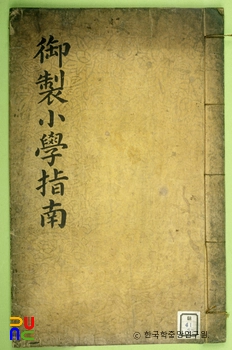 御製小學指南
ⓒ 한국학중앙연구원